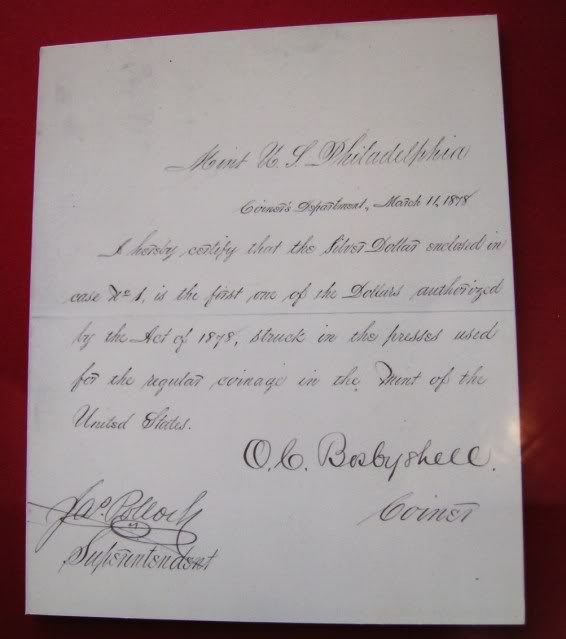 Mint U. S. Philadelphia
Coiner's Department, March 11, 1878
I hereby certify that the Silver Dollar enclosed in
case No 1, is the first one of the Dollars authorized
by the Act of 1878, struck in the presses used
for the regular coinage in the Mint of the
United States.
O. C. Bosbyshell.
Coiner
Jas. Pollock
Superintendent